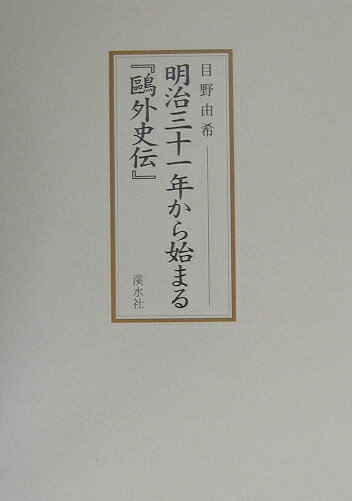 目野由希
明治三十一年から始まる
『鷗外史伝』
溪水社